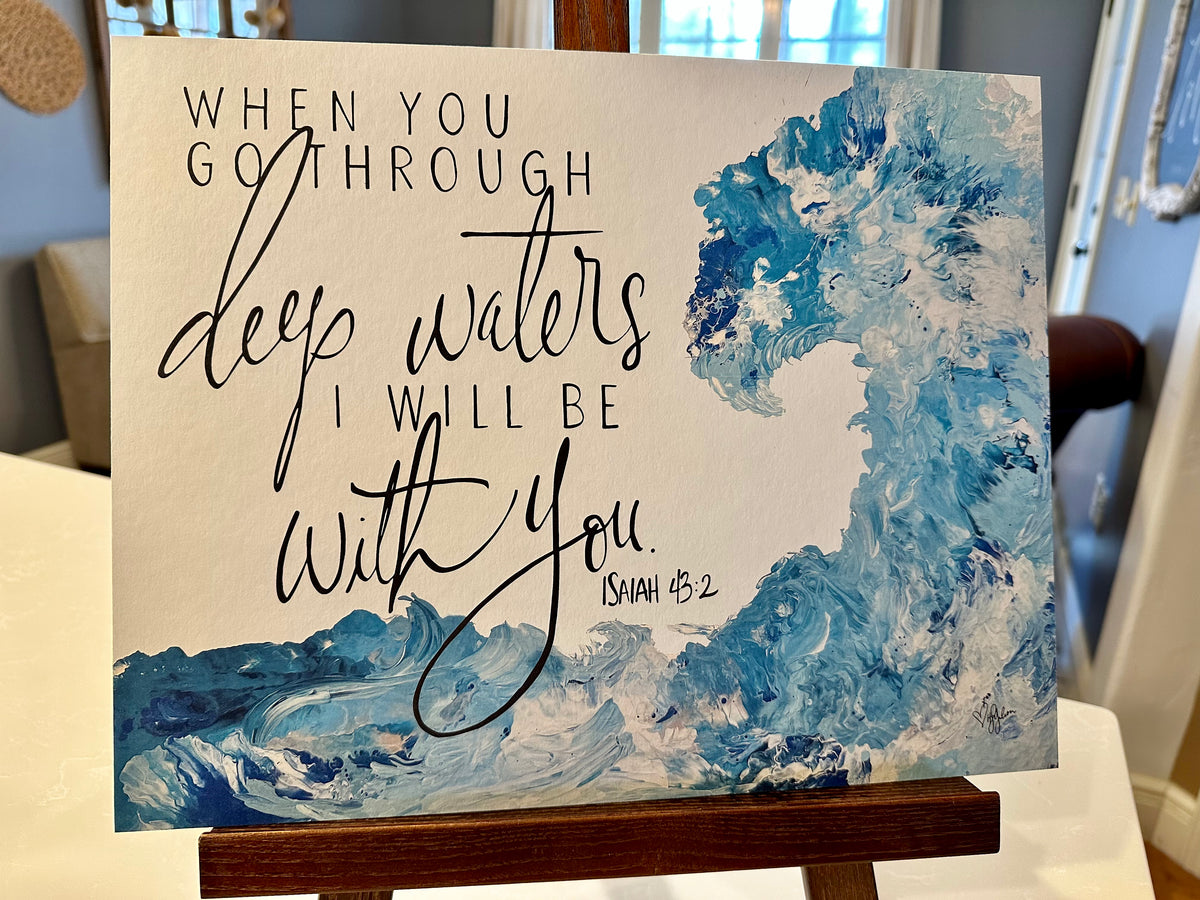 WHEN YOU
GO THROUGH
deep waters
I WILL BE
with you.
ISAIAH 43:2